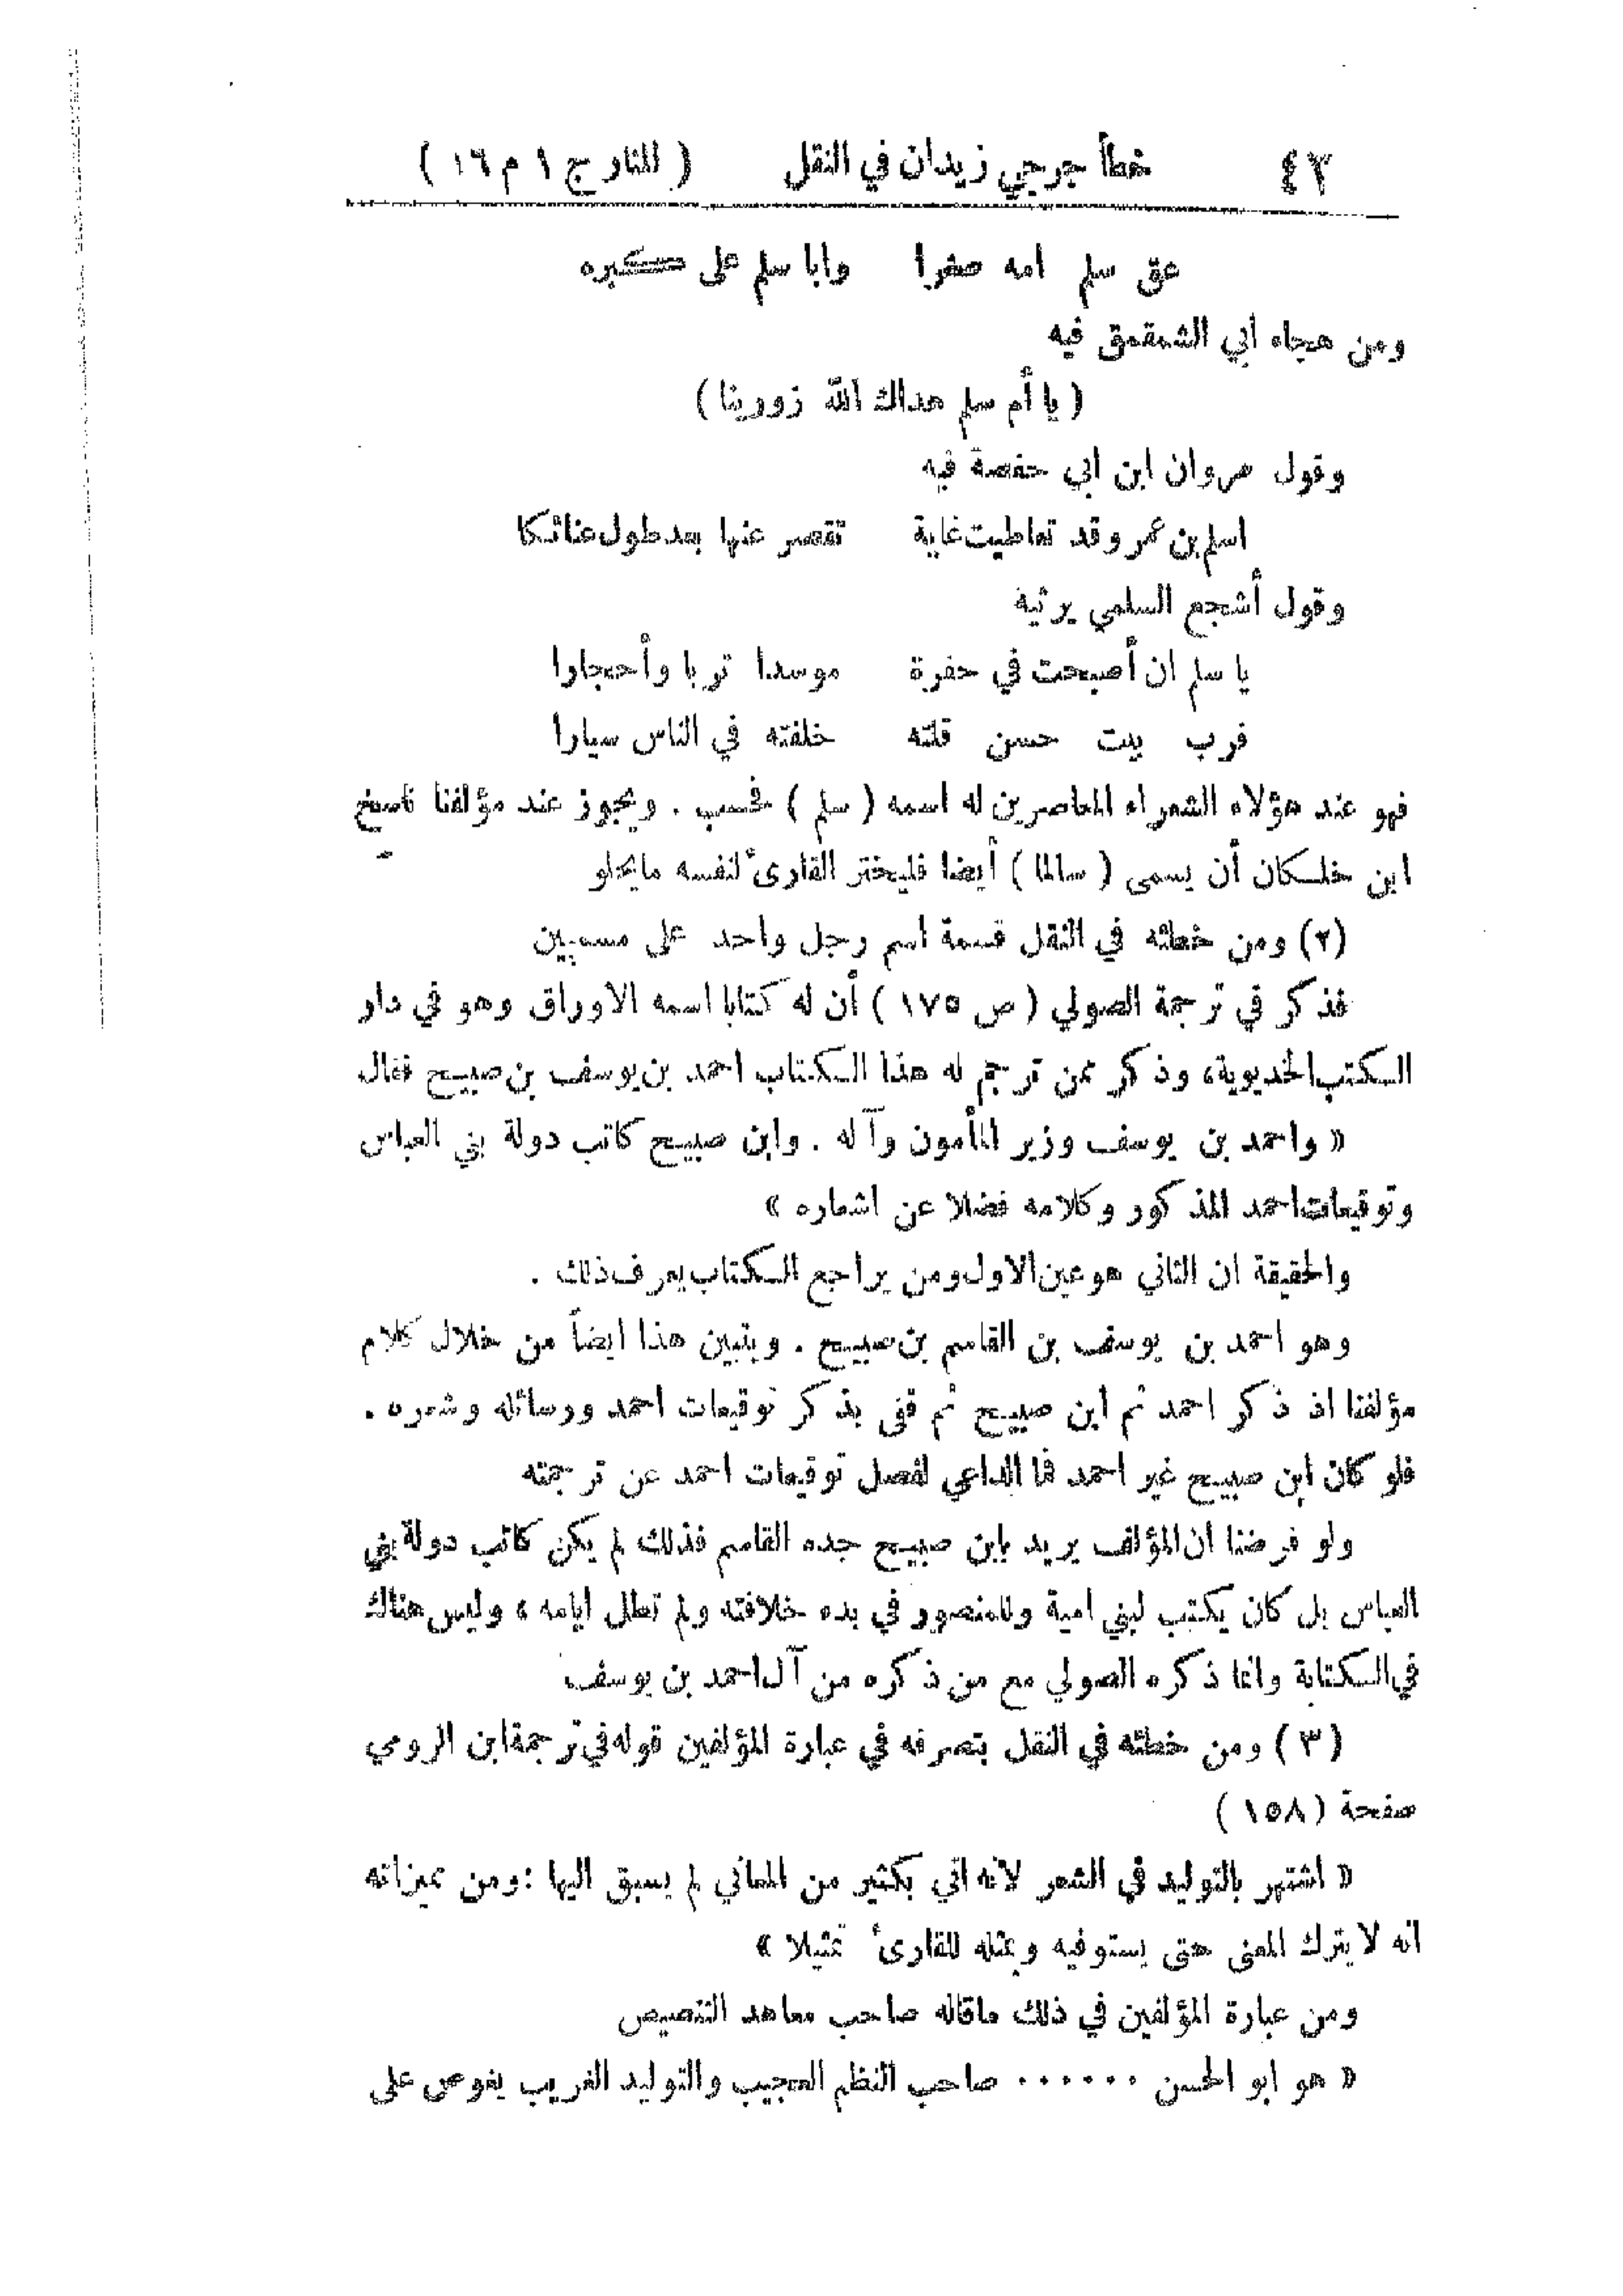 ٤٢ خطأ جرجي زيدان في النقل ( المنار ج ١ م ١٦ )
عق سلم امه صغرا وابا سلم على كبره
ومن هجاء أبي الشمقمق فيه
( يا أم سلم هداك الله زورينا )
وقول مروان ابن ابي حفصة فيه
اسلم بن عمرو قد تعاطيت غاية تقصر عنها بعد طول عنائكا
وقول أشجع السلمي يرثيه
يا سلم ان أصبحت في حفرة موسدا تربا وأحجارا
فرب بيت حسن قلته خلفته في الناس سيارا
فهو عند هؤلاء الشعراء المعاصرين له اسمه ( سلم ) فحسب . ويجوز عند مؤلفنا ناسخ
ابن خلكان أن يسمى ( سالما ) أيضا فليختر القارئ لنفسه مايحلو
(٢) ومن خطئه في النقل قسمة اسم رجل واحد على مسميين
فذكر في ترجمة الصولي ( ص ١٧٥ ) أن له كتابا اسمه الاوراق وهو في دار
الكتب الخديوية، وذكر ممن ترجم له هذا الكتاب احمد بن يوسف بن صبيح فقال
« واحمد بن يوسف وزير المأمون وآله . وابن صبيح كاتب دولة بني العباس
وتوقيعات احمد المذكور وكلامه فضلا عن اشعاره »
والحقيقة ان الثاني هو عين الاول ومن يراجع الكتاب يعرف ذلك .
وهو احمد بن يوسف بن القاسم بن صبيح . ويتبين هذا ايضاً من خلال كلام
مؤلفنا اذ ذكر احمد ثم ابن صبيح ثم قفى بذكر توقيعات احمد ورسائله وشعره .
فلو كان ابن صبيح غير احمد فما الداعي لفصل توقيعات احمد عن ترجمته
ولو فرضنا ان المؤلف يريد بابن صبيح جده القاسم فذلك لم يكن كاتب دولة بني
العباس بل كان يكتب لبني امية وللمنصور في بدء خلافته ولم تطل ايامه ، وليس هناك
في الكتابة وانما ذكره الصولي مع من ذكره من آل احمد بن يوسف
( ٣ ) ومن خطئه في النقل بتصرفه في عبارة المؤلفين قوله في ترجمة ابن الرومي
صفحة ( ١٥٨ )
« اشتهر بالتوليد في الشعر لانه اتي بكثير من المعاني لم يسبق اليها : ومن مميزاته
انه لا يترك المعنى حتى يستوفيه ويمثله للقارئ تمثيلا »
ومن عبارة المؤلفين في ذلك ماقاله صاحب معاهد التنصيص
« هو ابو الحسن ٠٠٠٠٠٠ صاحب النظم العجيب والتوليد الغريب يغوص على